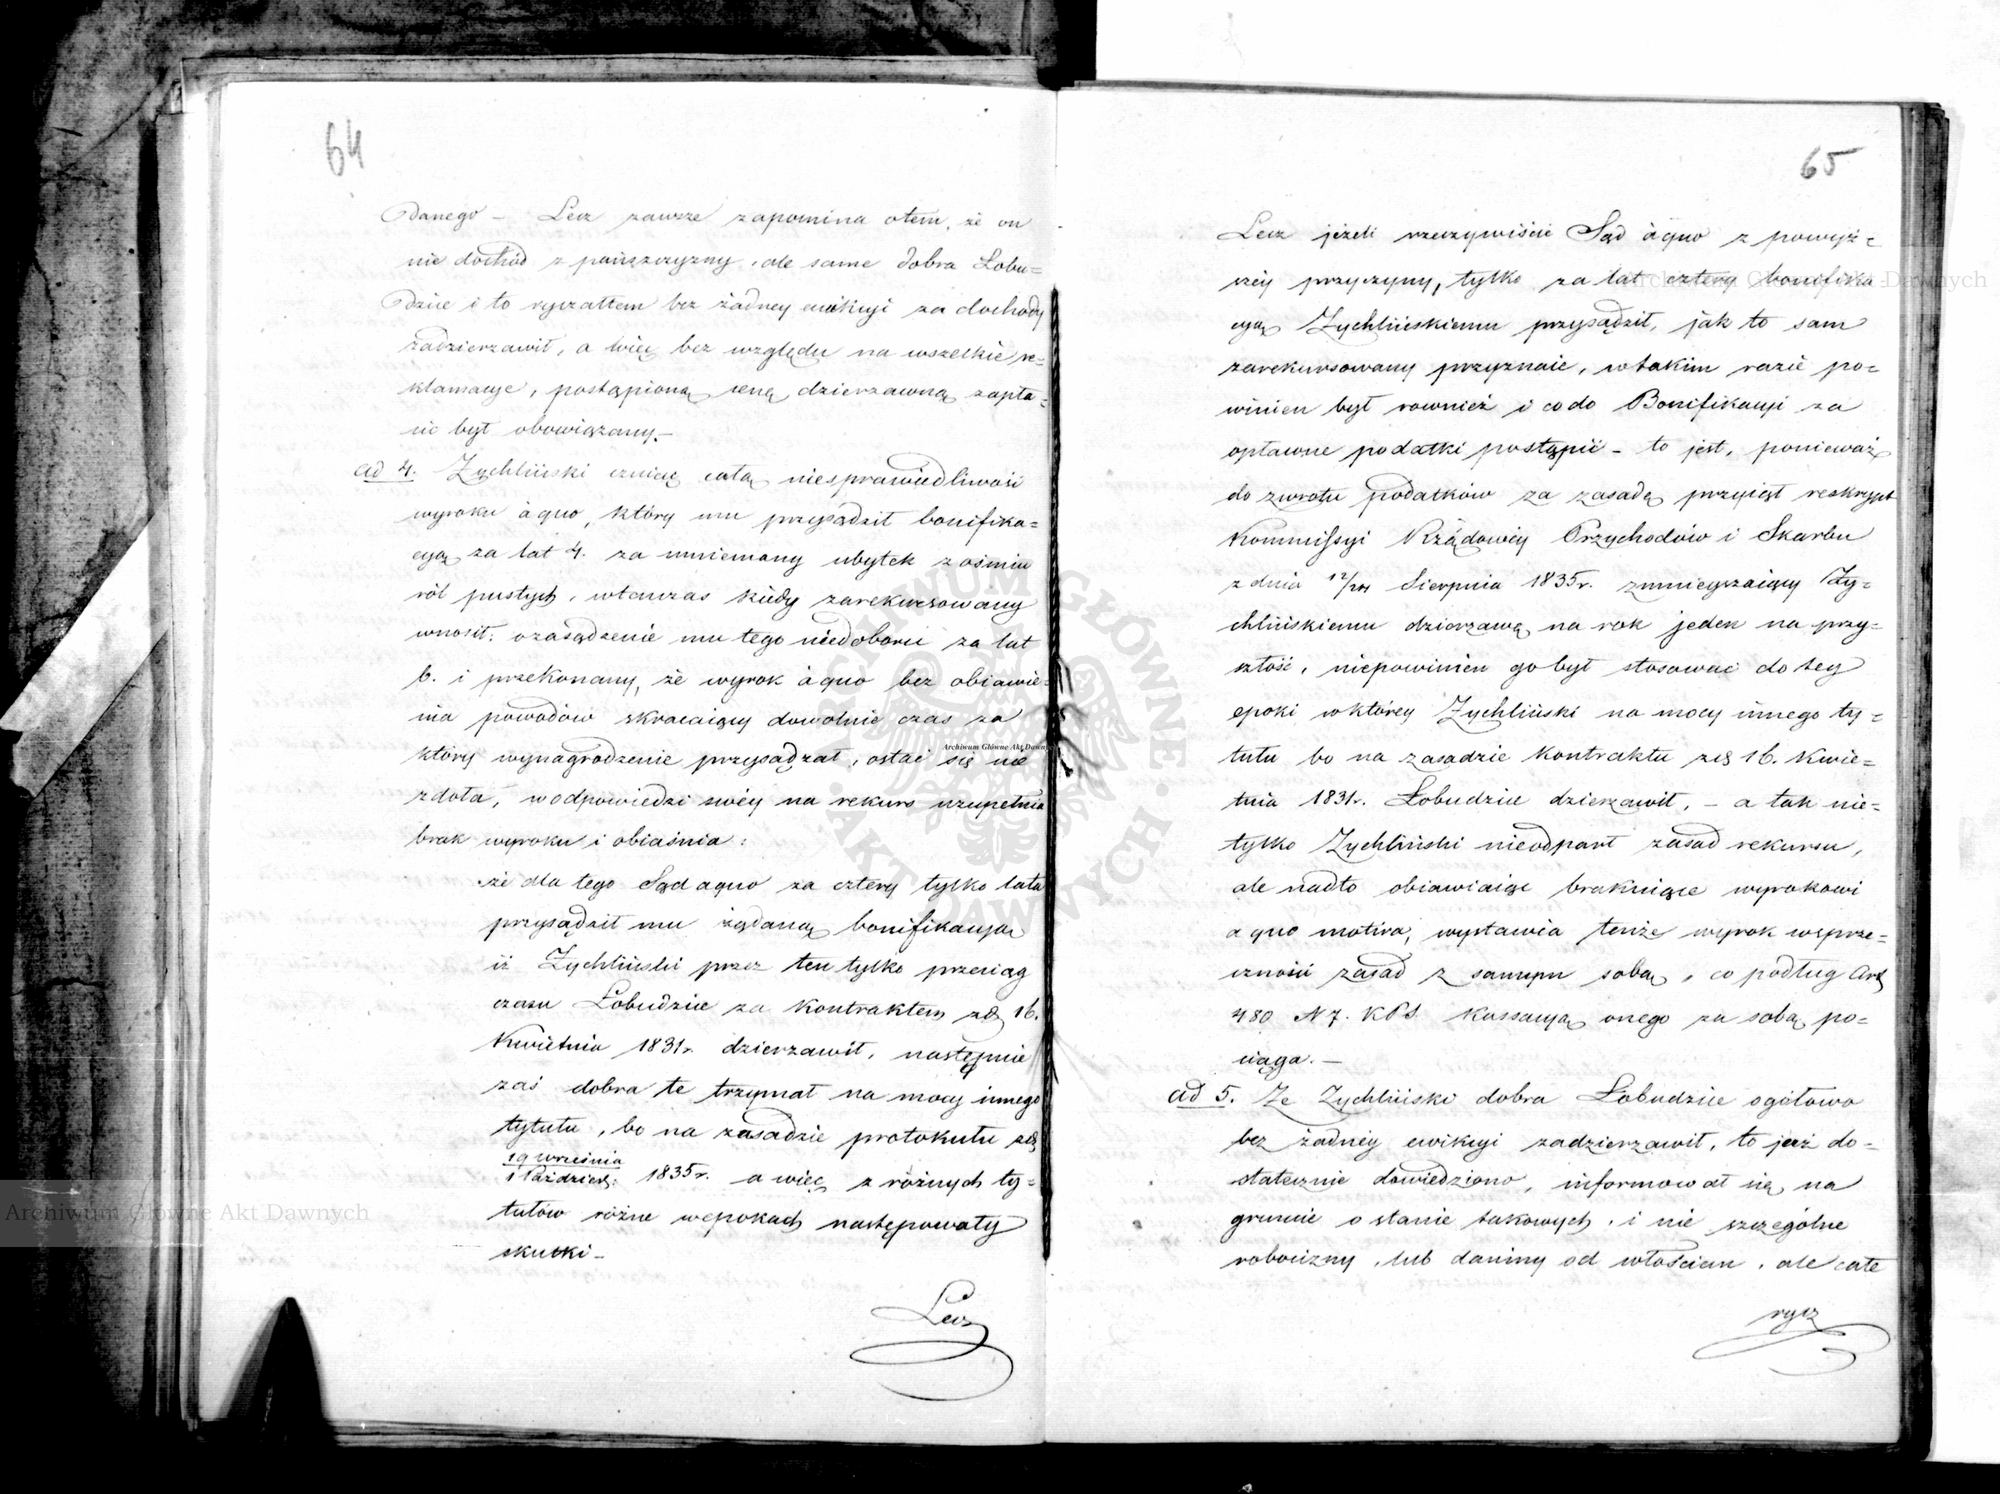 64
danego – Lecz zawsze zapomina otem, że on
nie dochód z pańszczyzny, ale same dobra Łobu=
dzice i to ryczałtem bez żadney ewikcyi za dochody
zadzierzawił, a więc bez względu na wszelkie re=
klamacye, postąpioną cenę dzierzawną zapła=
cić był obowiązany. –
ad 4. Zychliński czuiąc całą niesprawiedliwość
wyroku à quo, który mu przysądził bonifika=
cyą za lat 4. za mniemany ubytek z ośmiu
ról pustych, wtenczas kiedy zarekursowany
wnosił: ozasądzenie mu tego niedoboru za lat
6. i przekonany, że wyrok à quo bez obiawie=
nia powodów skracaiący dowolnie czas za
który wynagrodzenie przysądzał, ostać się nie
zdoła, wodpowiedzi swéy na rekurs uzupełnia
brak wyroku i obiaśnia:
że dla tego Sąd aquo za cztery tylko lata
przysądził mu żądaną bonifikacyą
iż Zychliński przez ten tylko przeciąg
czasu Łobudzice za kontraktem zd. 16.
Kwietnia 1831r. dzierzawił, następnie
zaś dobra te trzymał na mocy innego
tytułu, bo na zasadzie protokułu zd.
19 Września
1 Paździer: 1835r. a więc z różnych ty=
tułów różne wepokach następowały
skutki –
Lecz
65
Lecz jeżeli rzeczywiście Sąd àquo z powyż=
széy przyczyny, tylko za lat cztery bonifika
cyą Zychlińskiemu przysądził, jak to sam
zarekursowany przyznaie, wtakim razie po=
winien był rownież i codo Bonifikacyi za
opłacone podatki postąpić – to jest, ponieważ
do zwrotu podatków za zasadę przyiął reskrypt
Kommissyi Rządowéy Przychodów i Skarbu
z dnia 12/24 Sierpnia 1835r. zmnieyszaiący Zy=
chlińskiemu dzierzawę na rok jeden na przy=
szłość, niepowinien go był stosować do tey
epoki wktórey Zychliński na mocy innego ty=
tułu bo na zasadzie kontraktu zd. 16. Kwie=
tnia 1831r. Łobudzice dzierzawił, – a tak nie=
tylko Zychliński nieodparł zasad rekursu,
ale nadto obiawiaiąc brakuiące wyrokowi
a quo motiva, wystawia tenże wyrok wsprze=
czności zasad z samym sobą, co podług Art.
480 N 7. KPS. Kassacyą onego za sobą po=
ciąga. –
ad 5. Ze Zychliński dobra Łobudzice ogółowo
bez żadnéy ewikcyi zadzierzawił, to jest do=
statecznie dowiedziono, informował się na
gruncie o stanie takowych, i nie szczególne
robocizny, lub daniny od włościan, ale całe
rycz
Archiwum Główne Akt Dawnych
Archiwum Główne Akt Dawnych
Archiwum Główne Akt Dawnych
ARCHIWUM GŁÓWNE AKT DAWNYCH